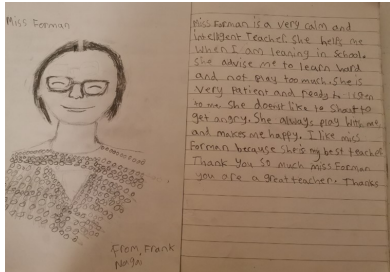 Miss Forman
Miss Forman is a very calm and
intelligent Teacher. She help me
When I am leaning in School.
She advise me to learn hard
and not play too much. She is
very Patient and ready to listen
to me She doesnt like to Shout to
get angry. She always play with me,
and makes me happy. I like miss
Forman because She's my best teacher
Thank you So much miss Forman
you are a great teacher. Thanks
From, Frank